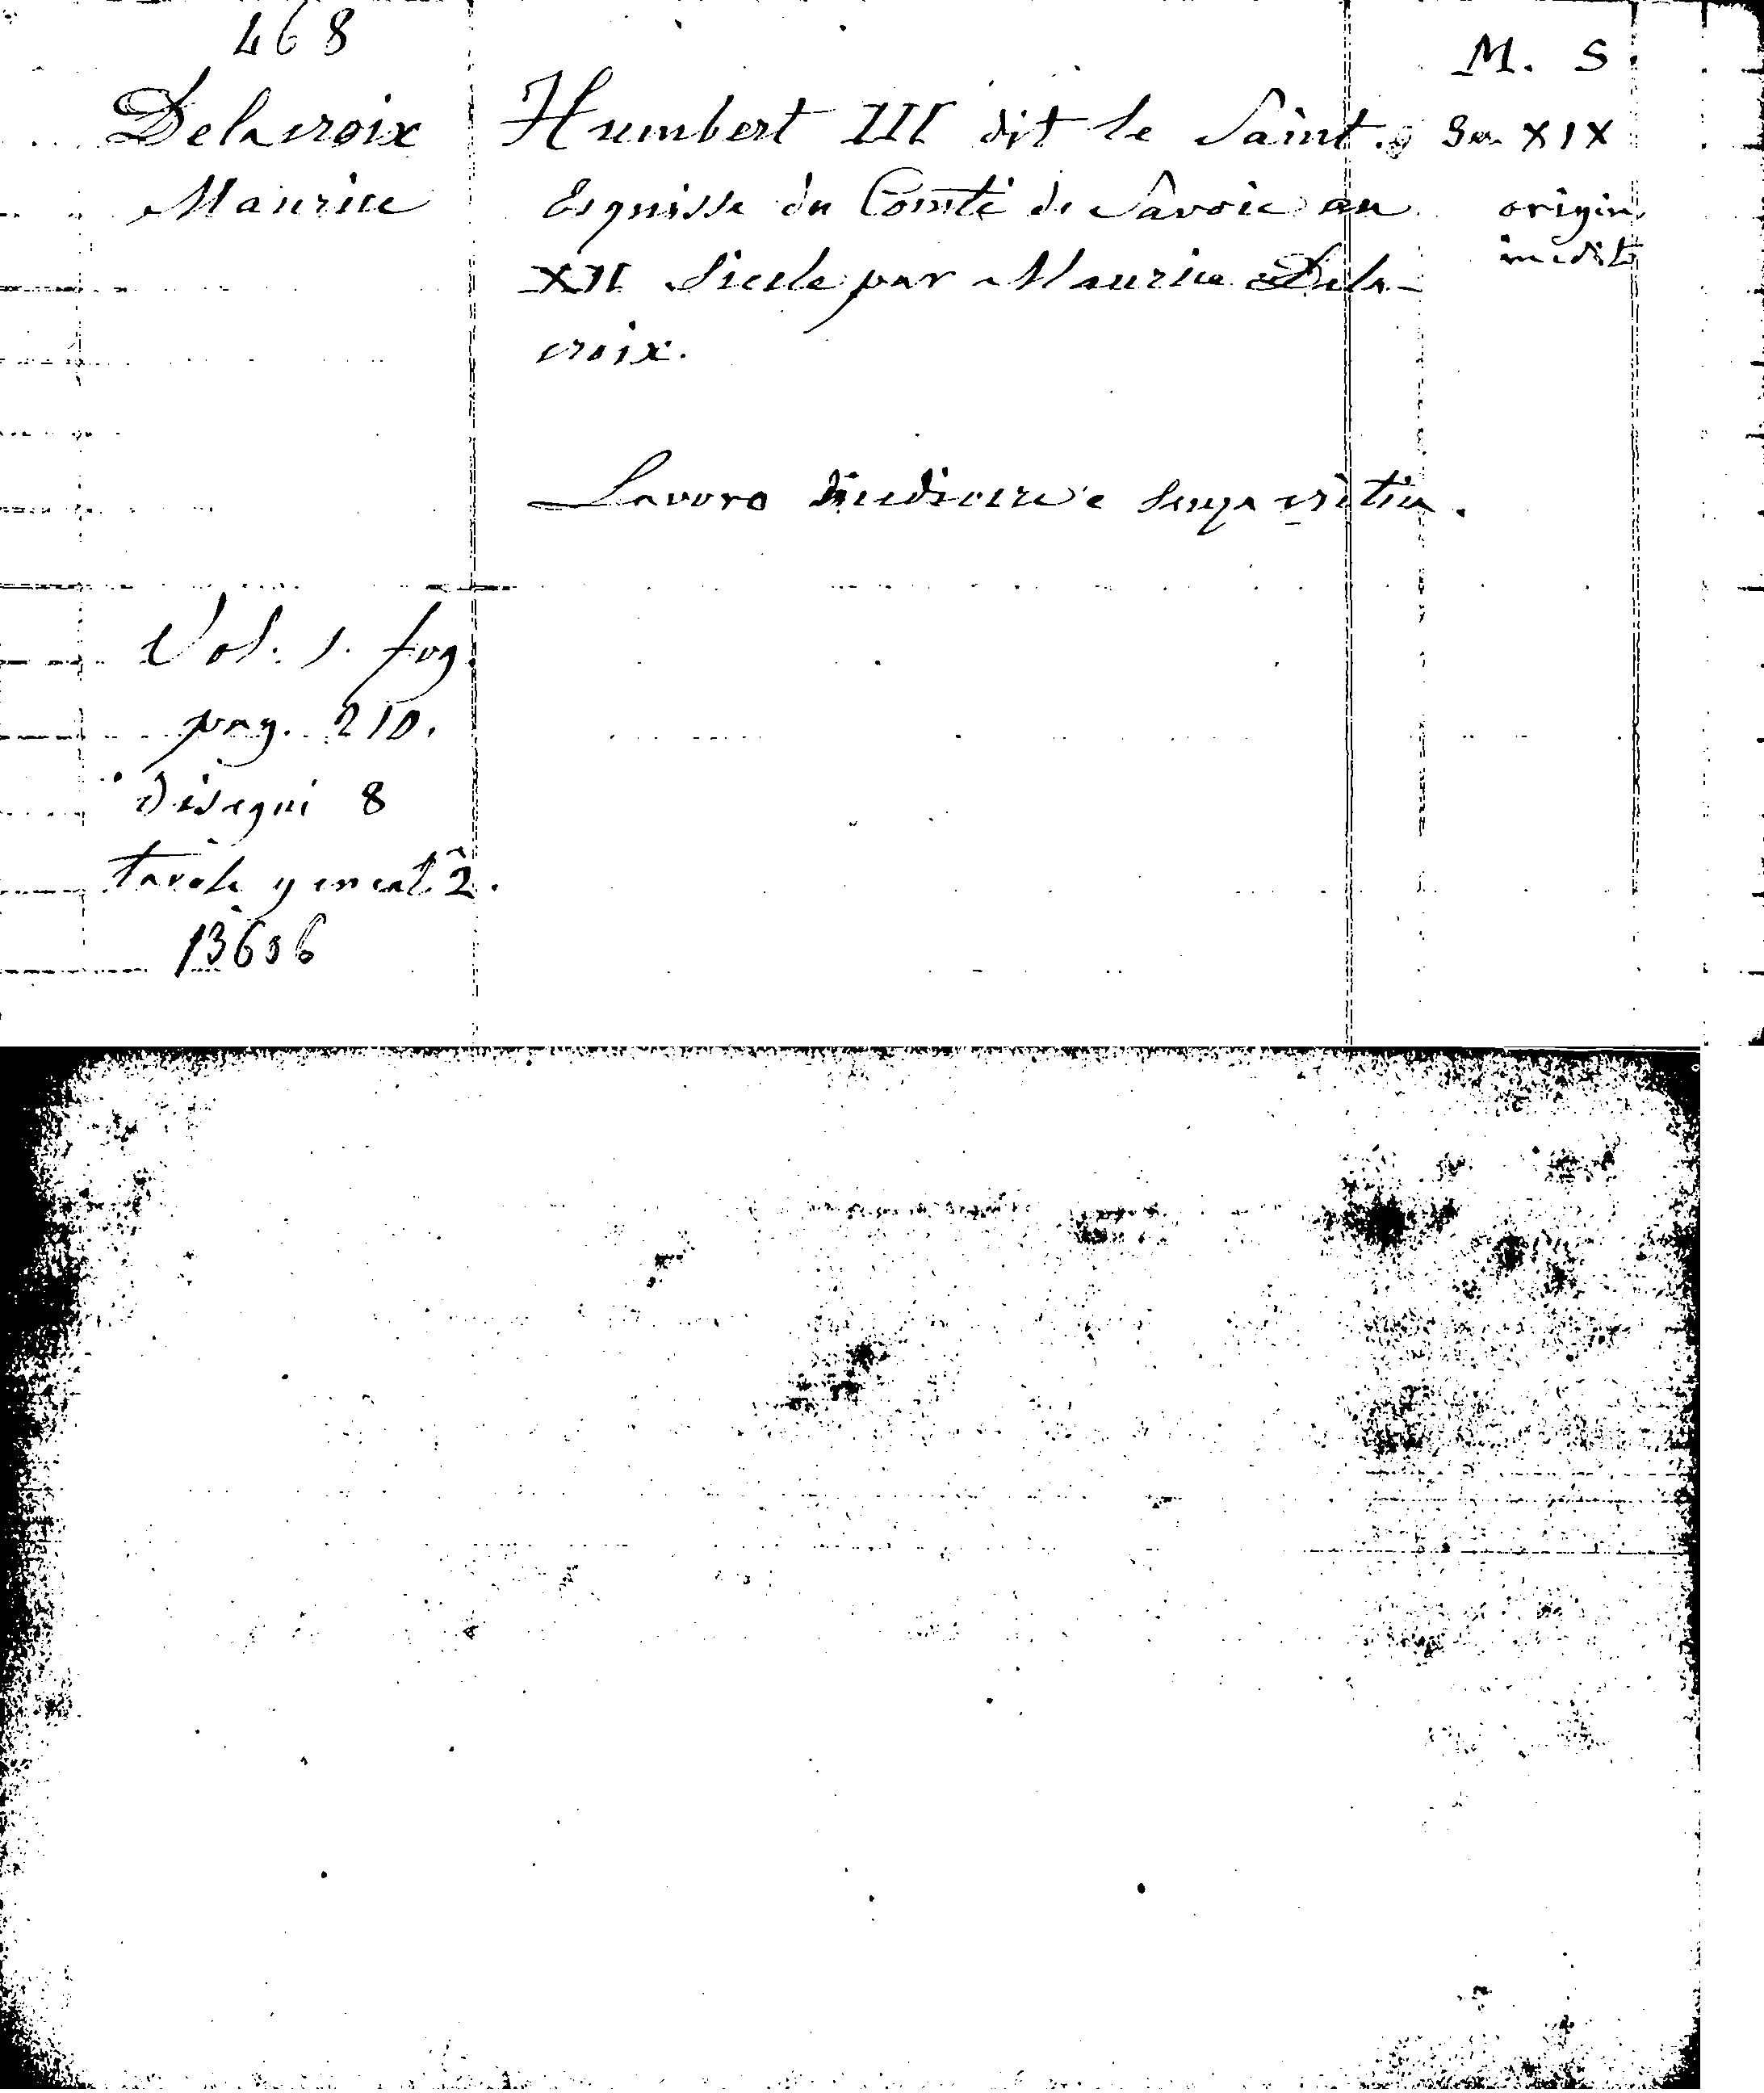 468
M. S.
Delacroix
Maurice
Humbert III dit le Saint.
Esquisse du Comté de Savoie au
XII Siecle par Maurice Dela-
croix.
Sec. XIX
origin.
inedito
Lavoro mediocre e senza critica.
Vol. 1. fog.
pag. 210.
disegni 8
tavole geneal. 2.
13636